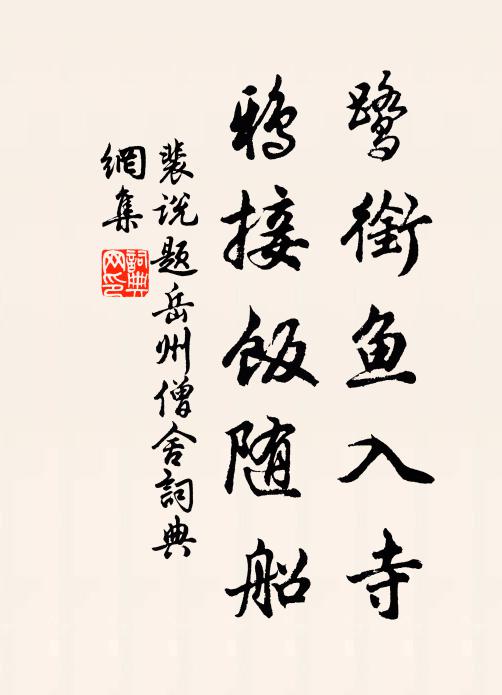 鹭銜鱼入寺
鸦接飯随船
裴说题岳州僧舍詞典
網集
詞典
网印